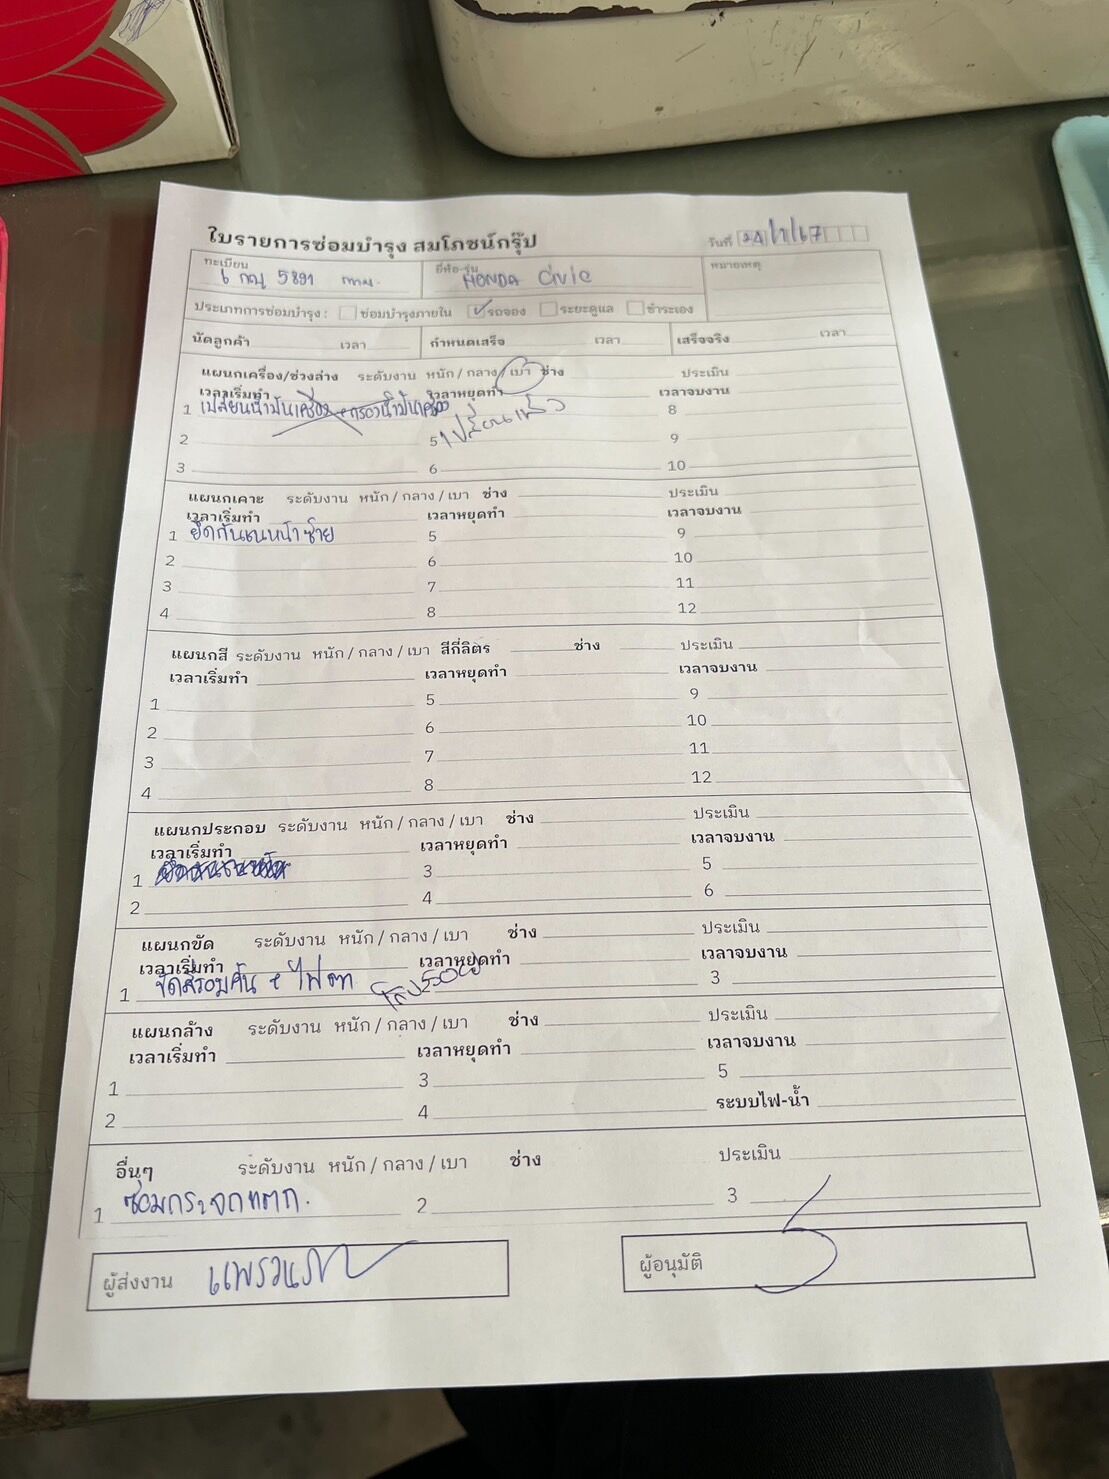 ใบรายการซ่อมบำรุง สมโภชน์กรุ๊ป วันที่ 24/1/67
ทะเบียน ยี่ห้อ-รุ่น หมายเหตุ
6 กญ 5891 กทม. HONDA Civic
ประเภทการซ่อมบำรุง : ซ่อมบำรุงภายใน ✓ รถจอง ระยะดูแล ชำระเอง
นัดลูกค้า เวลา กำหนดเสร็จ เวลา เสร็จจริง เวลา
แผนกเครื่อง/ช่วงล่าง ระดับงาน หนัก / กลาง / เบา ช่าง ประเมิน
เวลาเริ่มทำ เวลาหยุดทำ เวลาจบงาน
1 เปลี่ยนน้ำมันเครื่อง + กรองน้ำมันเครื่อง 8
2 5 เปลี่ยนแล้ว 9
3 6 10
แผนกเคาะ ระดับงาน หนัก / กลาง / เบา ช่าง ประเมิน
เวลาเริ่มทำ เวลาหยุดทำ เวลาจบงาน
1 ยึดกันชนหน้าซ้าย 5 9
2 6 10
3 7 11
4 8 12
แผนกสี ระดับงาน หนัก / กลาง / เบา สีกี่ลิตร ช่าง ประเมิน
เวลาเริ่มทำ เวลาหยุดทำ เวลาจบงาน
1 5 9
2 6 10
3 7 11
4 8 12
แผนกประกอบ ระดับงาน หนัก / กลาง / เบา ช่าง ประเมิน
เวลาเริ่มทำ เวลาหยุดทำ เวลาจบงาน
1 3 5
2 4 6
แผนกขัด ระดับงาน หนัก / กลาง / เบา ช่าง ประเมิน
เวลาเริ่มทำ เวลาหยุดทำ เวลาจบงาน
1 ขัดสีรอบคัน + ไฟตา 3
แผนกล้าง ระดับงาน หนัก / กลาง / เบา ช่าง ประเมิน
เวลาเริ่มทำ เวลาหยุดทำ เวลาจบงาน
1 3 5
2 4 ระบบไฟ-น้ำ
อื่นๆ ระดับงาน หนัก / กลาง / เบา ช่าง ประเมิน
1 ซ่อมกระจกแตก. 2 3
ผู้ส่งงาน ผู้อนุมัติ